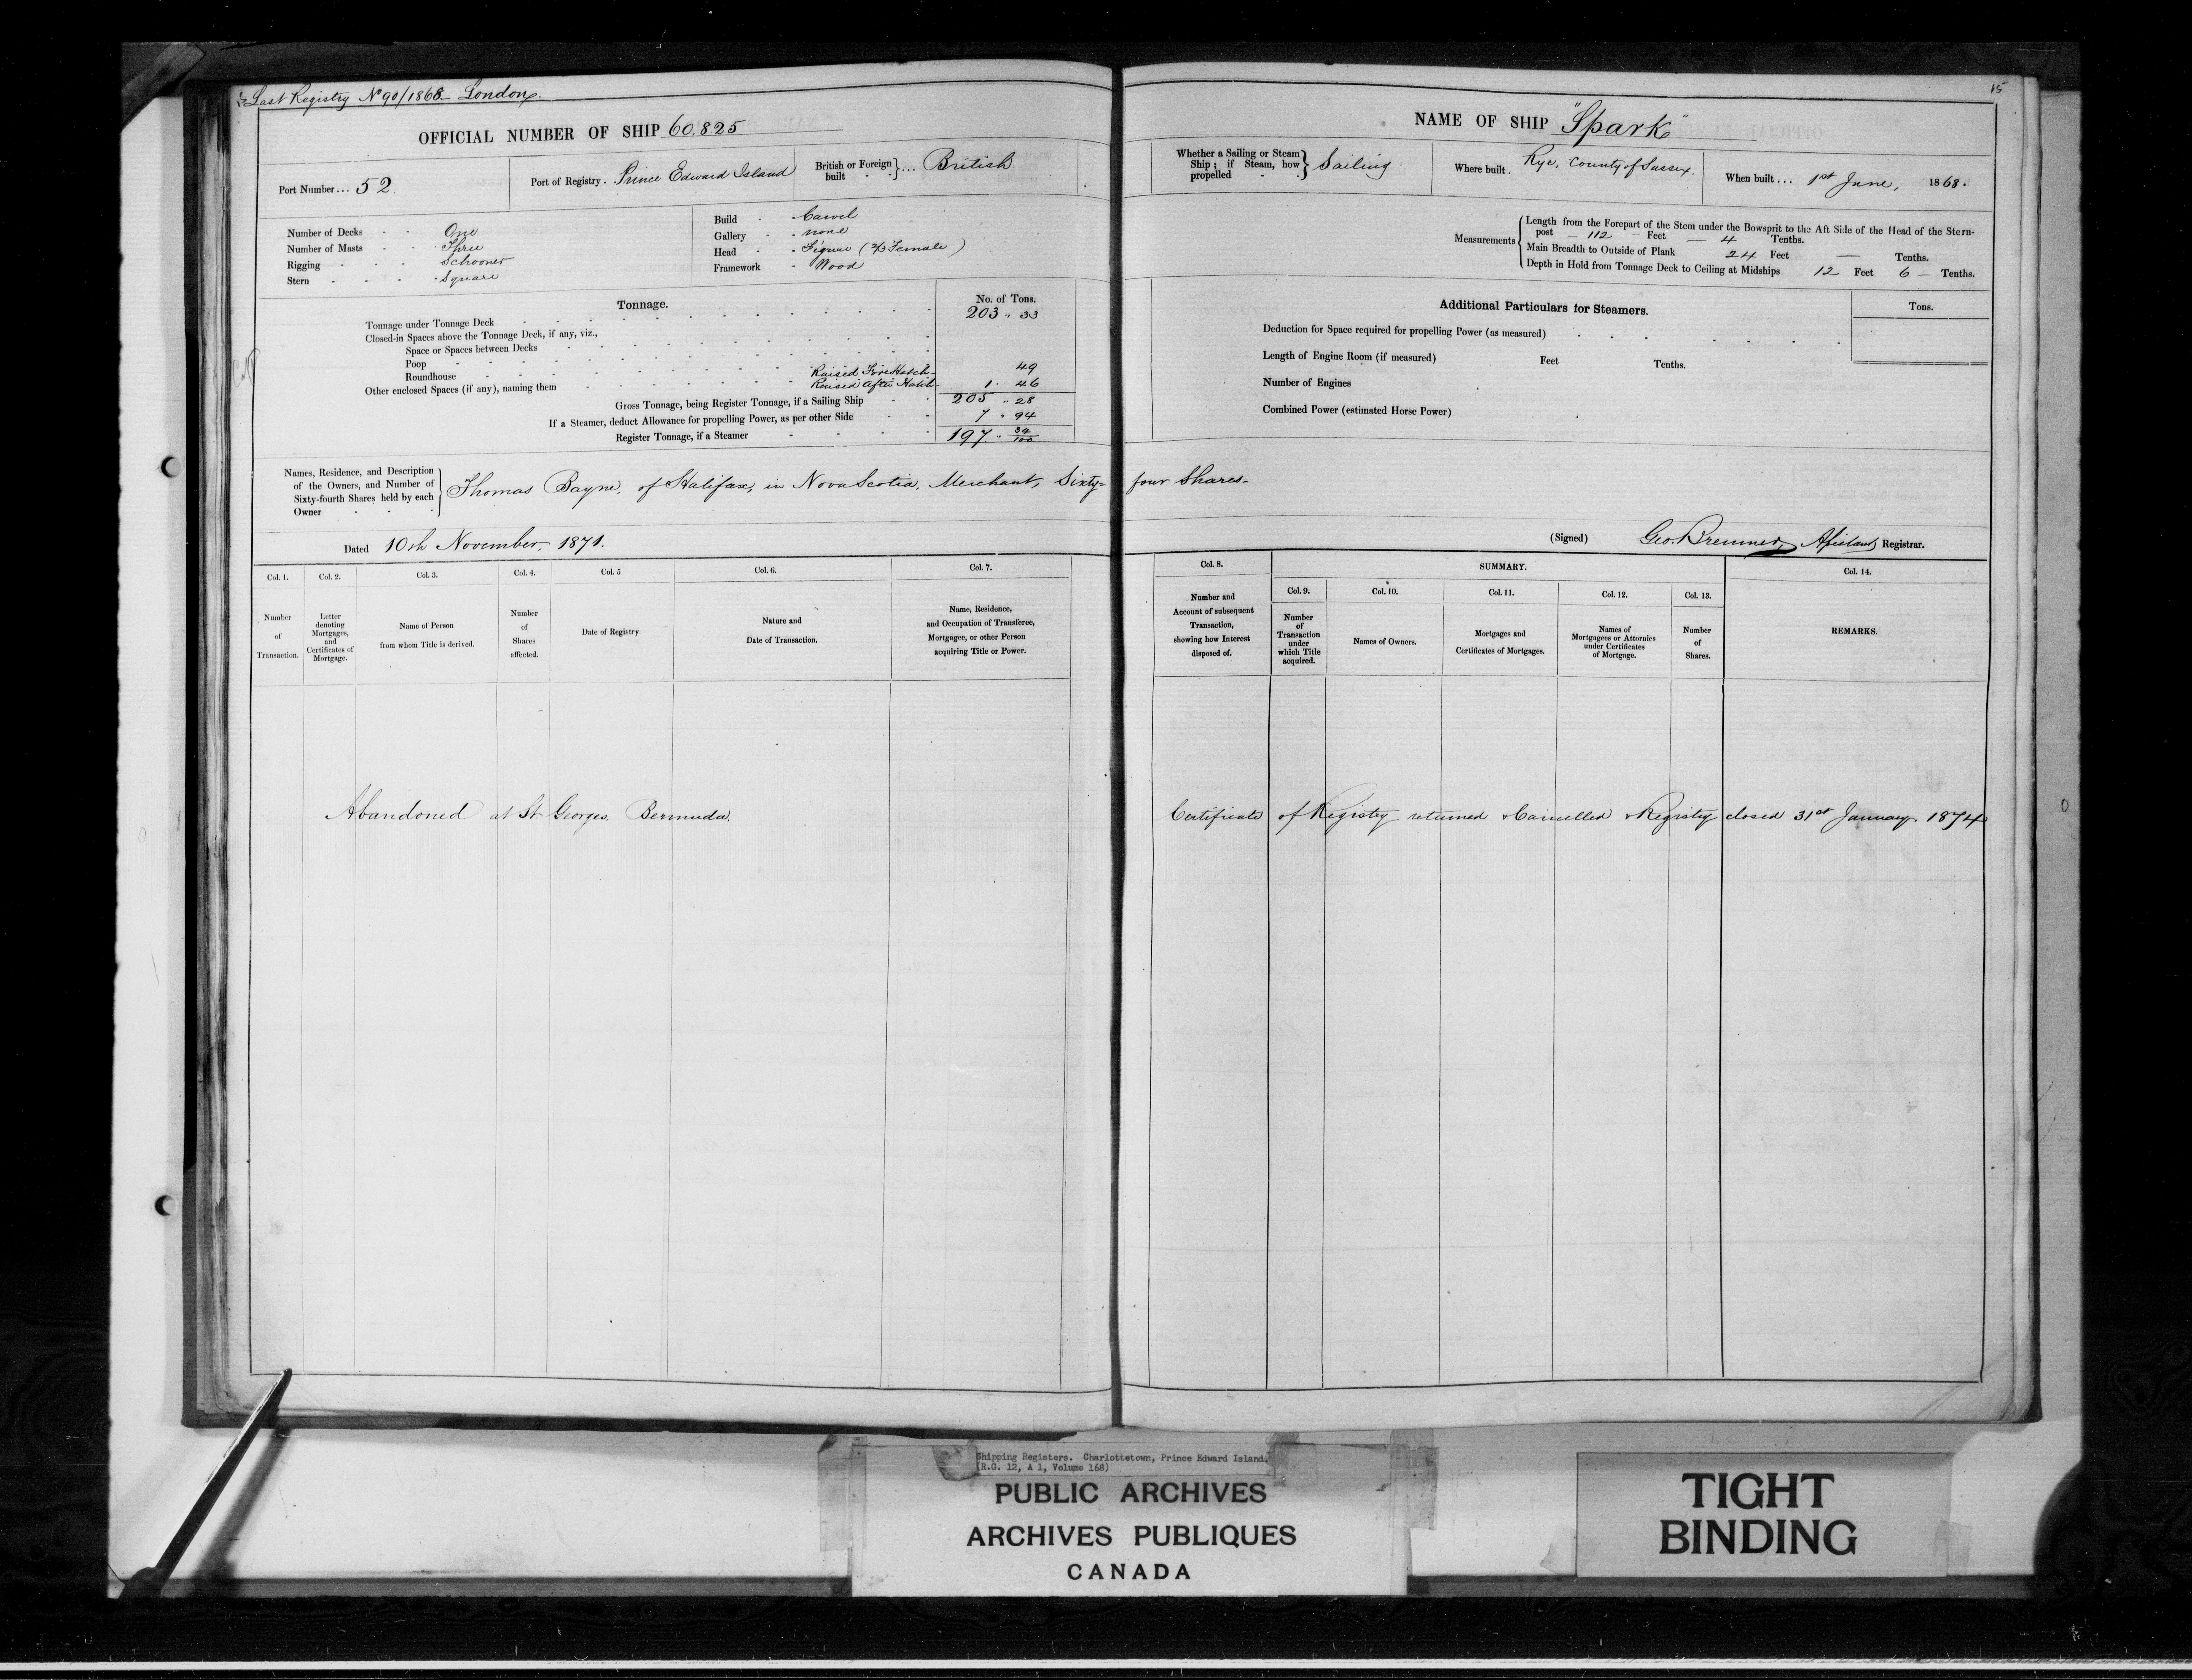 Last Registry No 90/1868 London.
15
OFFICIAL NUMBER OF SHIP 60,825
NAME OF SHIP "Spark"
Port Number... 52.
Port of Registry. Prince Edward Island
British or Foreign built } ... British
Whether a Sailing or Steam Ship; if Steam, how propelled } Sailing
Where built. Rye, County of Sussex.
When built... 1st June, 1868.
Number of Decks One
Number of Masts Three
Rigging Schooner
Stern Square
Build Carvel
Gallery none
Head Figure (½ Female)
Framework Wood
Measurements
Length from the Forepart of the Stem under the Bowsprit to the Aft Side of the Head of the Stern-
post 112 Feet 4 Tenths.
Main Breadth to Outside of Plank 24 Feet — Tenths.
Depth in Hold from Tonnage Deck to Ceiling at Midships 12 Feet 6 Tenths.
Tonnage. No. of Tons.
Tonnage under Tonnage Deck 203 " 33
Closed-in Spaces above the Tonnage Deck, if any, viz.,
Space or Spaces between Decks
Poop
Roundhouse Raised Fore Hatch 49
Other enclosed Spaces (if any), naming them Raised After Hatch 1. 46
Gross Tonnage, being Register Tonnage, if a Sailing Ship 205 " 28
If a Steamer, deduct Allowance for propelling Power, as per other Side 7 " 94
Register Tonnage, if a Steamer 197 " 34/100
Additional Particulars for Steamers. Tons.
Deduction for Space required for propelling Power (as measured)
Length of Engine Room (if measured) Feet Tenths.
Number of Engines
Combined Power (estimated Horse Power)
Names, Residence, and Description
of the Owners, and Number of
Sixty-fourth Shares held by each
Owner
Thomas Bayne, of Halifax, in Nova Scotia, Merchant, Sixty-four Shares-
Dated 10th November, 1871.
(Signed) Geo. Bremner, Assistant Registrar.
Col. 1. Col. 2. Col. 3. Col. 4. Col. 5 Col. 6. Col. 7. Col. 8. SUMMARY. Col. 14.
Col. 9. Col. 10. Col. 11. Col. 12. Col. 13.
Number of Transaction.
Letter denoting Mortgages, and Certificates of Mortgage.
Name of Person from whom Title is derived.
Number of Shares affected.
Date of Registry
Nature and Date of Transaction.
Name, Residence, and Occupation of Transferee, Mortgagee, or other Person acquiring Title or Power.
Number and Account of subsequent Transaction, showing how Interest disposed of.
Number of Transaction under which Title acquired.
Names of Owners.
Mortgages and Certificates of Mortgages.
Names of Mortgagees or Attornies under Certificates of Mortgage.
Number of Shares.
REMARKS.
Abandoned at St Georges. Bermuda. Certificate of Registry returned & Cancelled & Registry closed 31st January 1874
Shipping Registers. Charlottetown, Prince Edward Island.
(R.G. 12, A 1, Volume 168)
PUBLIC ARCHIVES
ARCHIVES PUBLIQUES
CANADA
TIGHT
BINDING